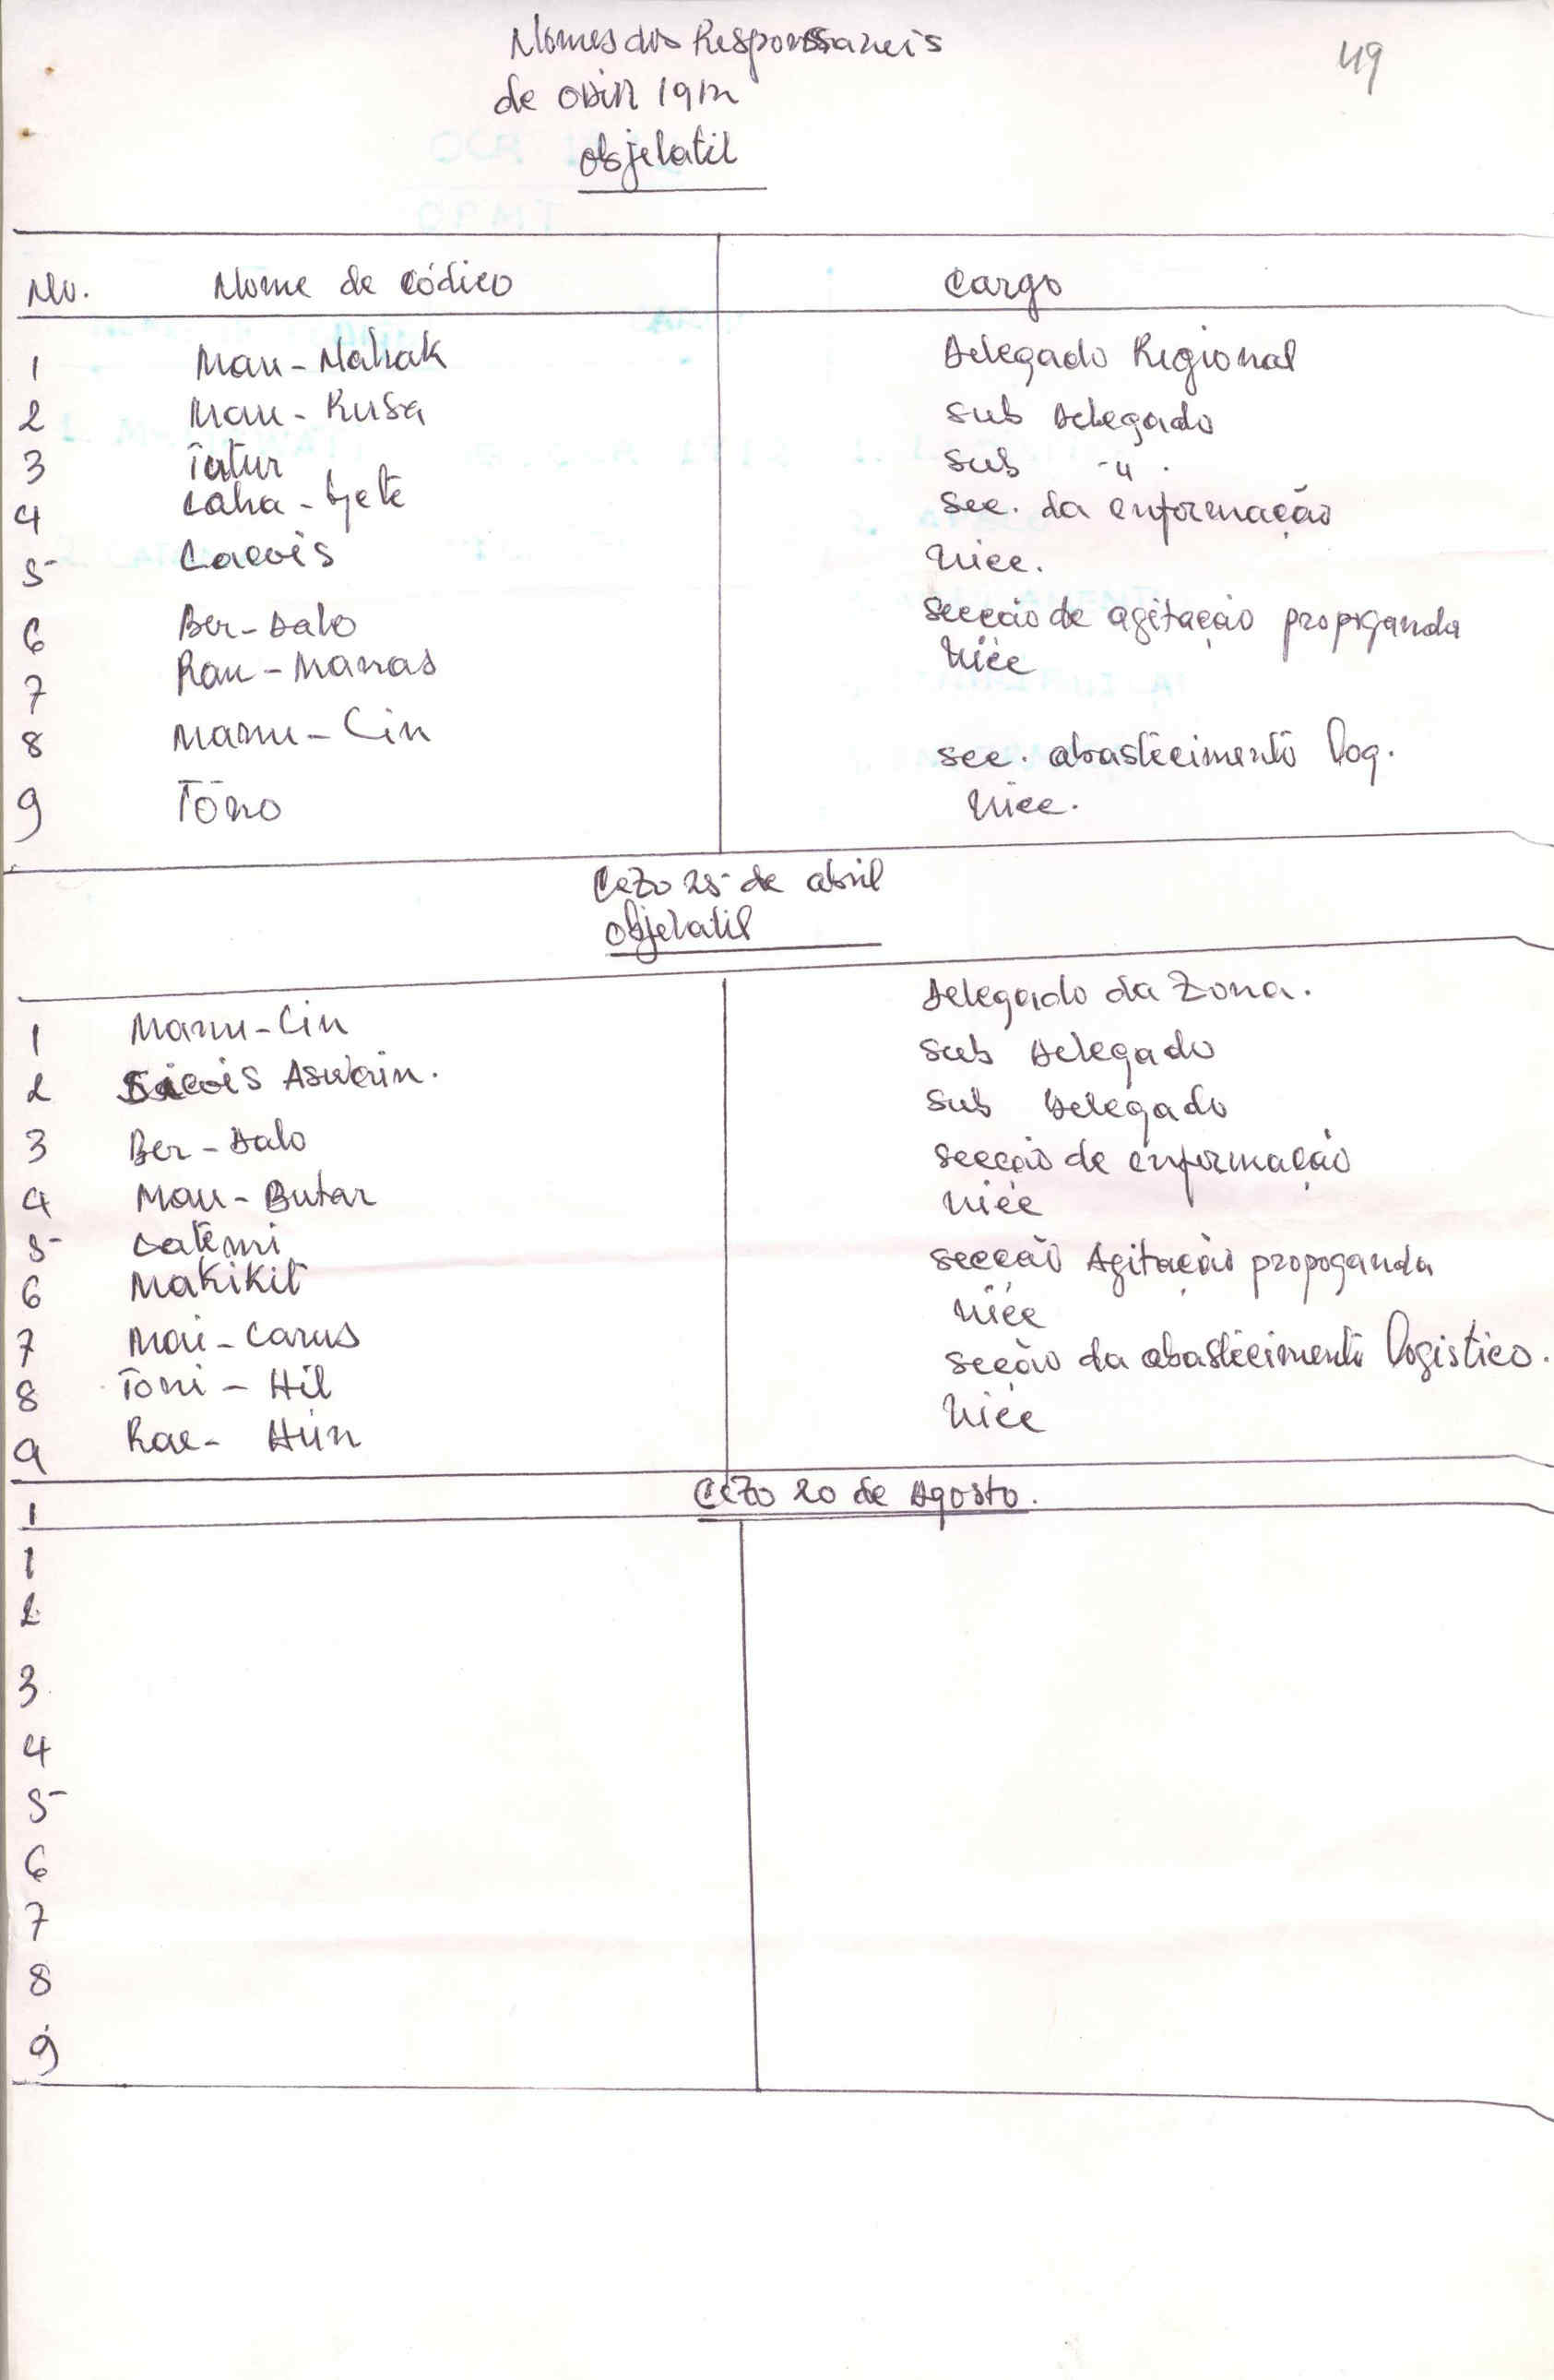 49
Nomes dos Responsaveis
de ODIR 1912
objelatil
No. Nome de Códico Cargo
1 Mau-Nahak Delegado Regional
2 Mau-Rusa Sub Delegado
3 Tatur Sub -"-
4 Laha- sec. da enformação
5 Lacois vice.
6 Ber-Dalo secção de agitação propoganda
7 Rau-Manas vice
8 Manu-Cin sec. abastecimento log.
9 Tōno vice.
CeZo 25 de abril
objelatil
1 Manu-Cin Delegado da Zona.
2 Aswain. Sub Delegado
3 Ber-Dalo Sub Delegado
4 Mau-Butar secção de enformação
5 vice
6 Makikit secção Agitação propoganda
7 Mai-Carus vice
8 Toni-Hil secão da abastecimento logistico.
9 Rae-Hun vice
CeZo 20 de Agosto.
1
1
2
3
4
5
6
7
8
9